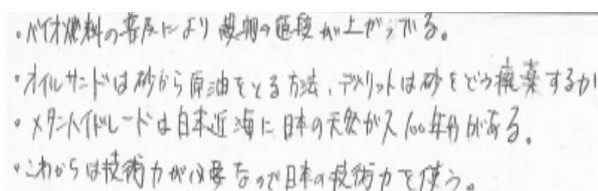 ・バイオ燃料の普及により穀物の値段が上がってる。
・オイルサンドは砂から原油をとる方法、デメリットは砂をどう廃棄するか
・メタンハイドレードは日本近海に日本の天然ガス100年分がある。
・これからは技術力が必要なので日本の技術力を使う。